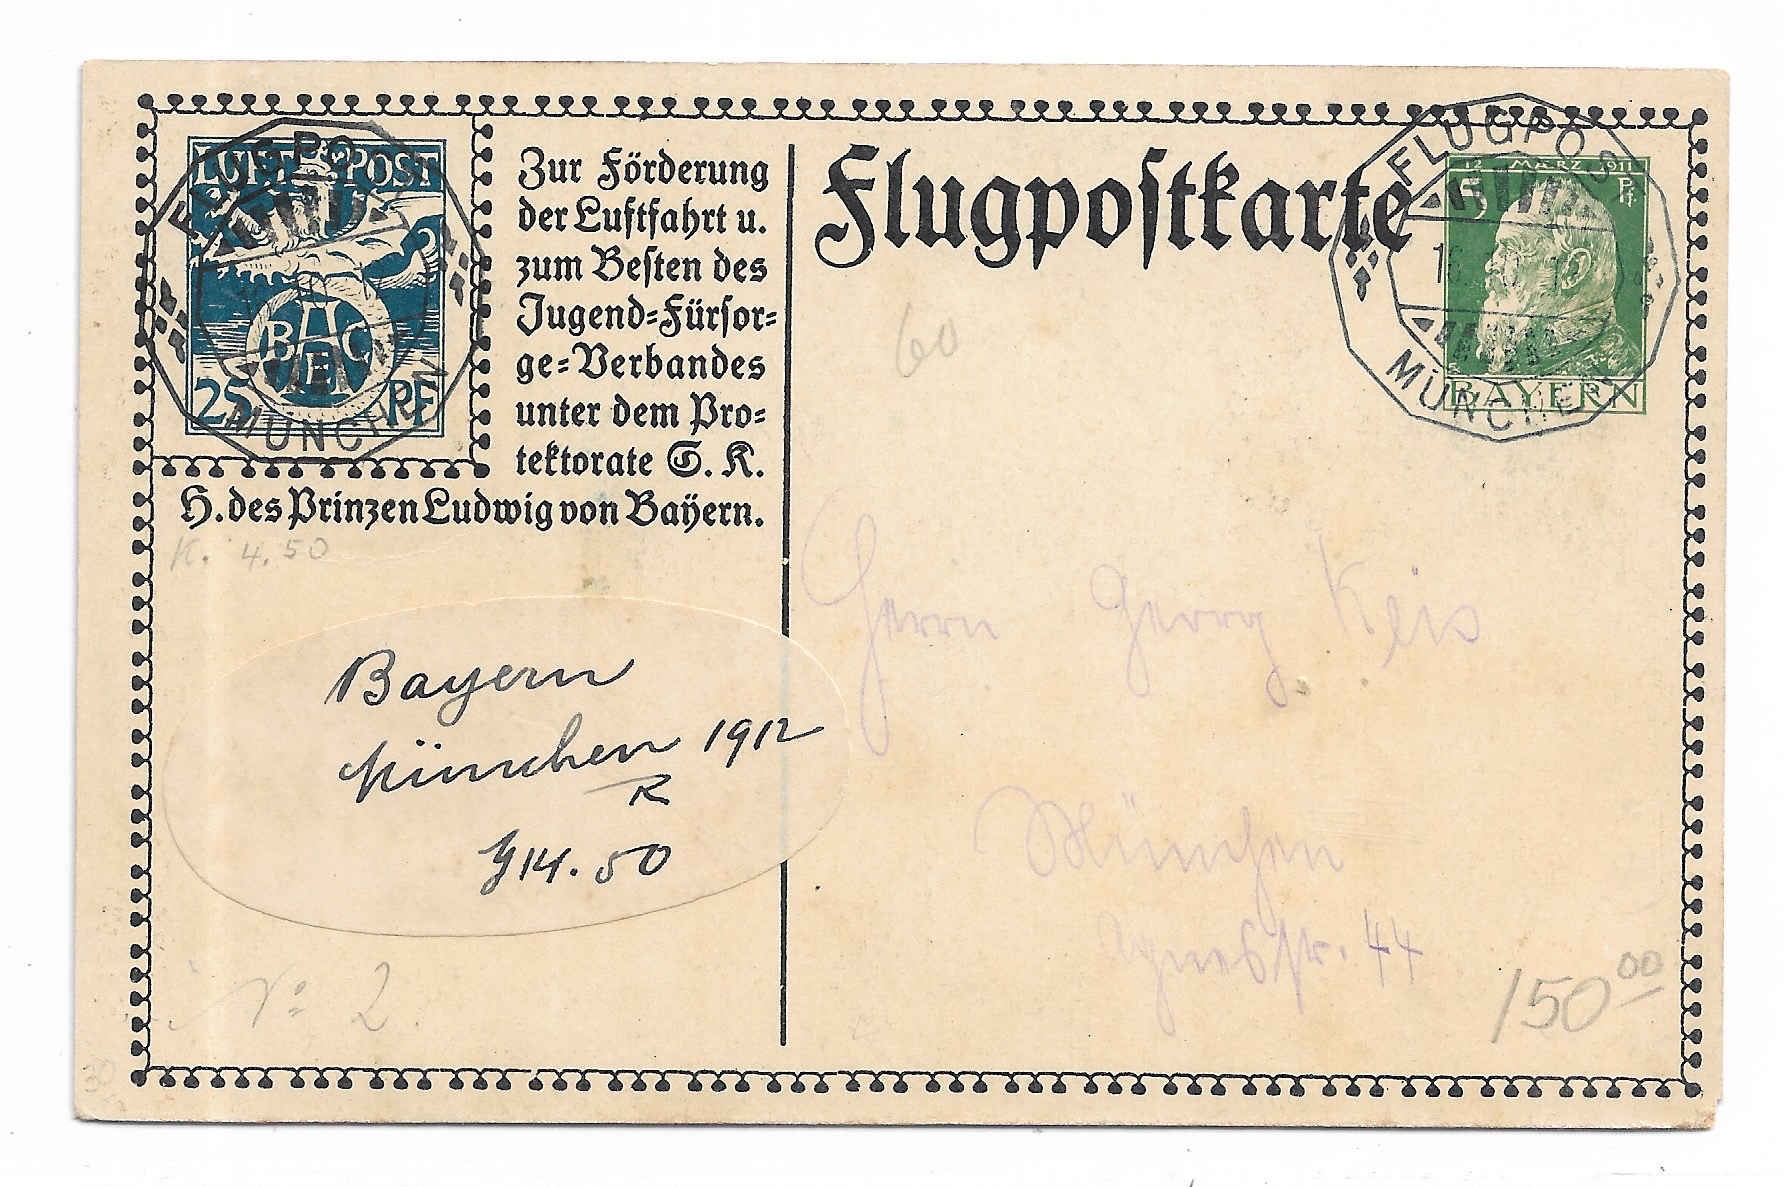 LUFT POST
BAC
25 PF
FLUGPOST
MÜNCHEN
Zur Förderung
der Luftfahrt u.
zum Besten des
Jugend=Fürsor=
ge=Verbandes
unter dem Pro=
tektorate S. K.
H. des Prinzen Ludwig von Bayern.
Flugpostkarte
FLUGPOST
MÜNCHEN
12 MÄRZ 1911
5 Pf.
BAYERN
60
K. 4.50
Herrn Georg Keis
Bayern
München 1912
R
München
Agnesstr. 44
No 2
150 00
30